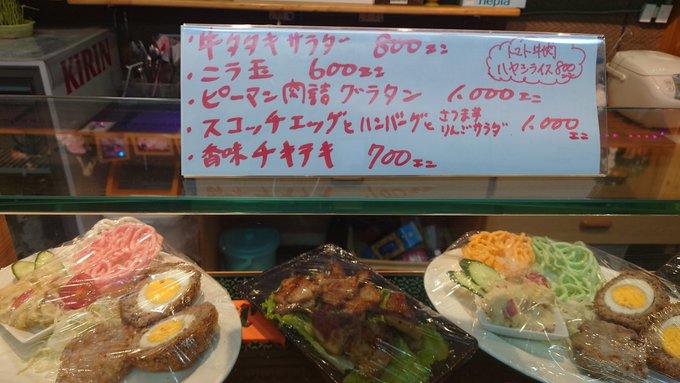 nepia
KIRIN
・牛タタキサラダー 800エン
・ニラ玉 600エン
・ピーマン肉詰グラタン 1.000エン
・スコッチエッグとハンバーグと さつま芋りんごサラダ 1.000エン
・香味チキテキ 700エン
トマト牛肉
ハヤシライス800エン